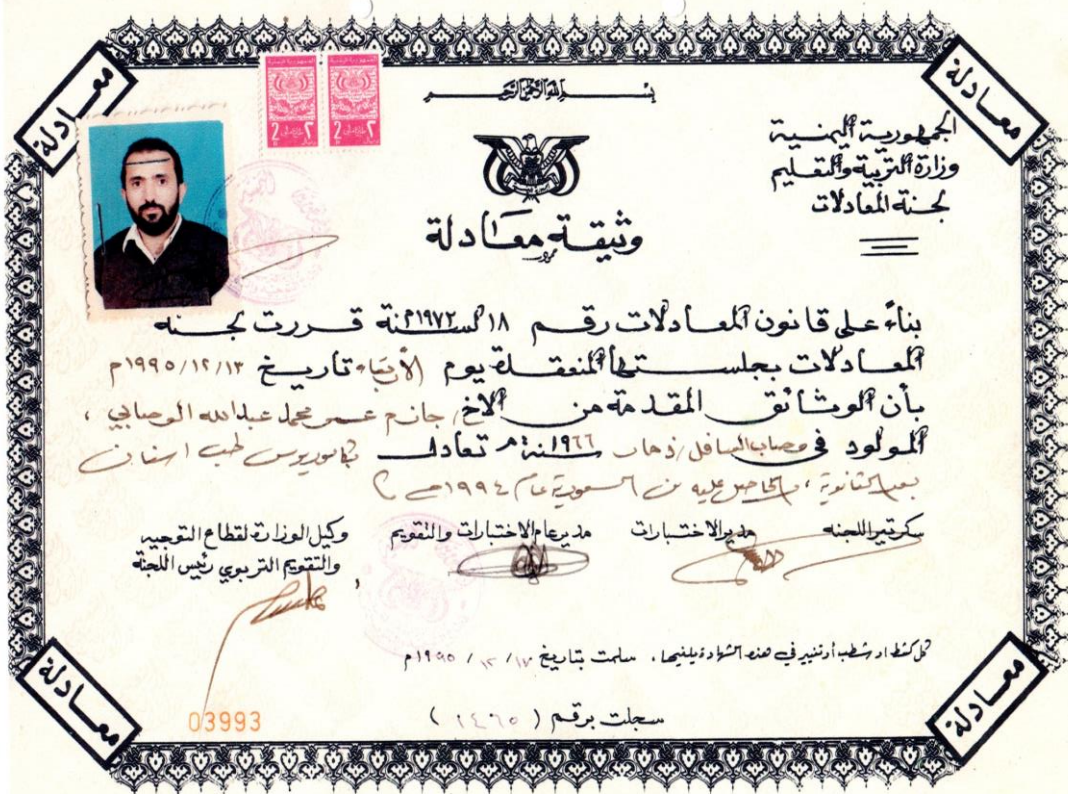 معادلة
معادلة
بسم الله الرحمن الرحيم
الجمهورية اليمنية
وزارة التربية والتعليم
لجنة المعادلات
2 ٢
2 ٢
وثيقة معادلة
بناءً على قانون المعادلات رقم ١٨ لسنة ١٩٧٢م قررت لجنه
المعادلات بجلستها المنعقدة يوم الأربعاء تاريخ ١٩٩٥/١٢/١٣م
بأن الوثائق المقدمة من الاخ / حازم عمر محمد عبدالله الوصابي ،
المولود في وصاب السافل / ذمار سنة ١٩٦٦م تعادل بكالوريوس طب اسنان
بعد الثانوية ، والحاصل عليه من السعودية عام ١٩٩٤م
سكرتير اللجنه
مدير الاختبارات
مدير عام الاختبارات والتقويم
وكيل الوزارة لقطاع التوجيه
والتقويم التربوي رئيس اللجنة
كل كشط او شطب أو تغيير في هذه الشهادة يلغيها . سلمت بتاريخ ١٧ / ١٢ / ١٩٩٥م
سجلت برقم ( ٢٤٦٥ )
03993
معادلة
معادلة